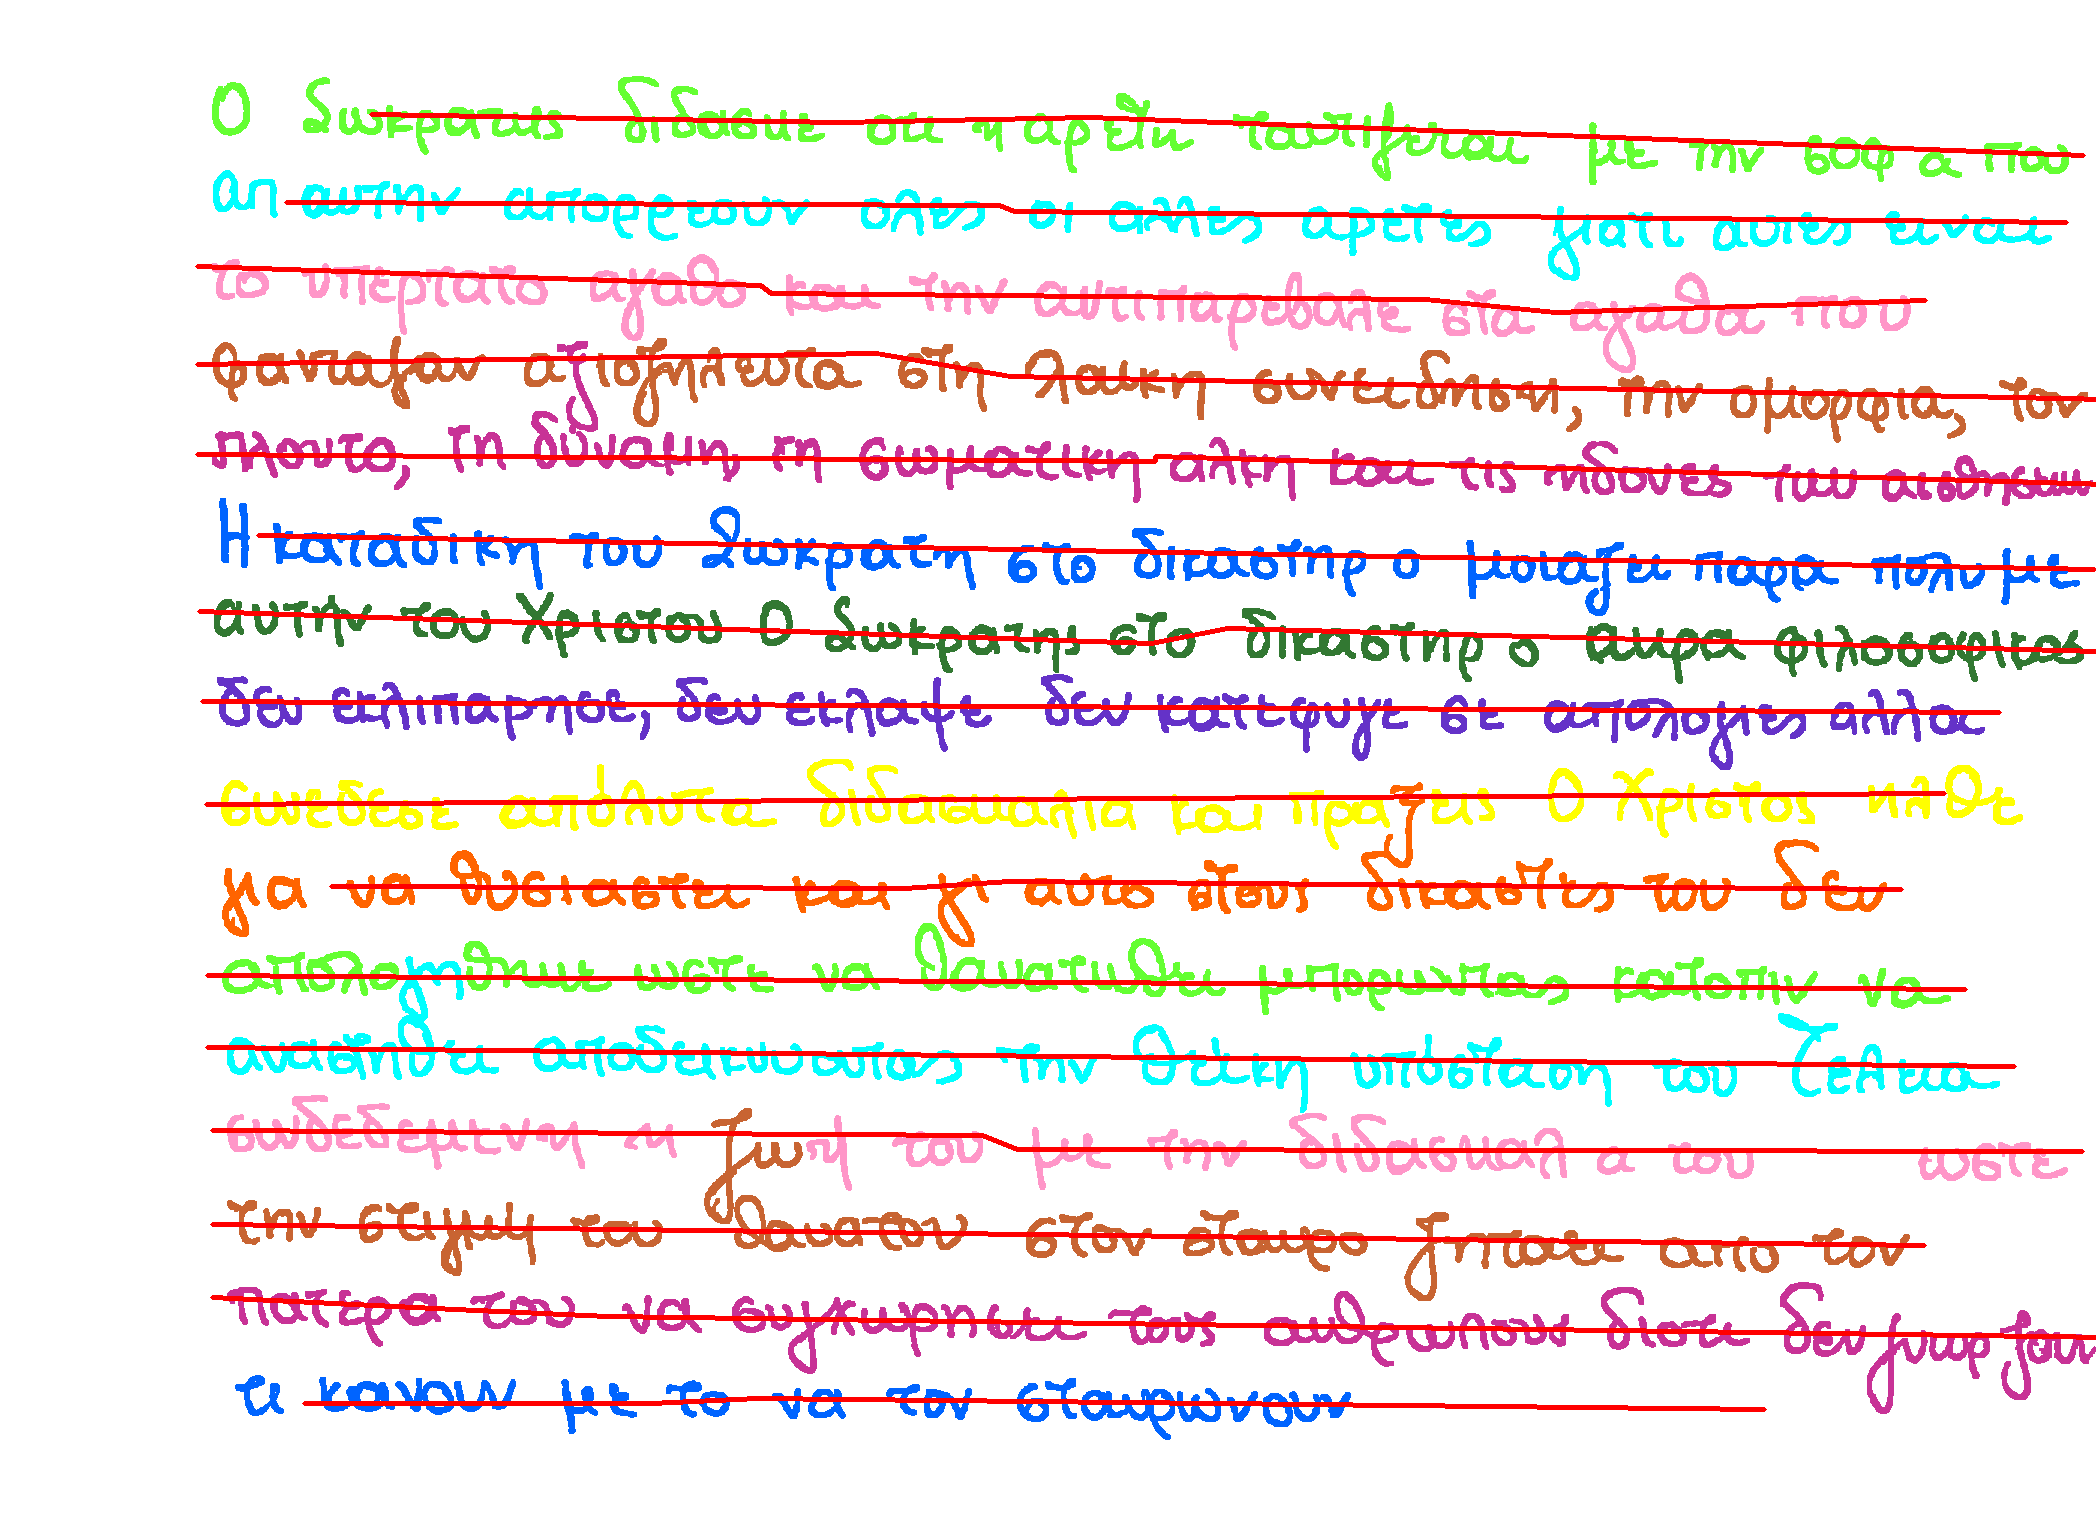 Ο Σωκρατης διδασκε οτι η αρετη ταυτιζεται με την σοφ α που
απ αυτην απορρεουν ολες οι αλλες αρετες γιατι αυτες ειναι
το υπερτατο αγαθο και την αντιπαρεβαλε στα αγαθα που
φανταζαν αξιοζηλευτα στη λαικη συνειδηση, την ομορφια, τον
πλουτο, τη δύναμη, τη σωματικη αλκη και τις ηδονες των αισθησεων
Η καταδικη του Σωκρατη στο δικαστηρ ο μοιαζει παρα πολυ με
αυτην του Χριστου Ο Σωκρατης στο δικαστηρ ο ακρα φιλοσοφικος
δεν εκλιπαρησε, δεν εκλαψε δεν κατεφυγε σε απολογιες αλλα
συνεδεσε απόλυτα διδασκαλια και πραξεις Ο Χριστος ηλθε
για να θυσιαστει και γι αυτο στους δικαστες του δεν
απολογηθηκε ωστε να θανατωθει μπορωντας κατοπιν να
αναστηθει αποδεικνυοντας την θεικη υπόσταση του Τελεια
συνδεδεμενη η ζωη του με την διδασκαλ α του ωστε
την στιγμη του θανατου στον σταυρο ζητησε απο τον
πατερα του να συγχωρησει τους ανθρωπους διοτι δεν γνωρ ζουν
τι κανουν με το να τον σταυρωνουν